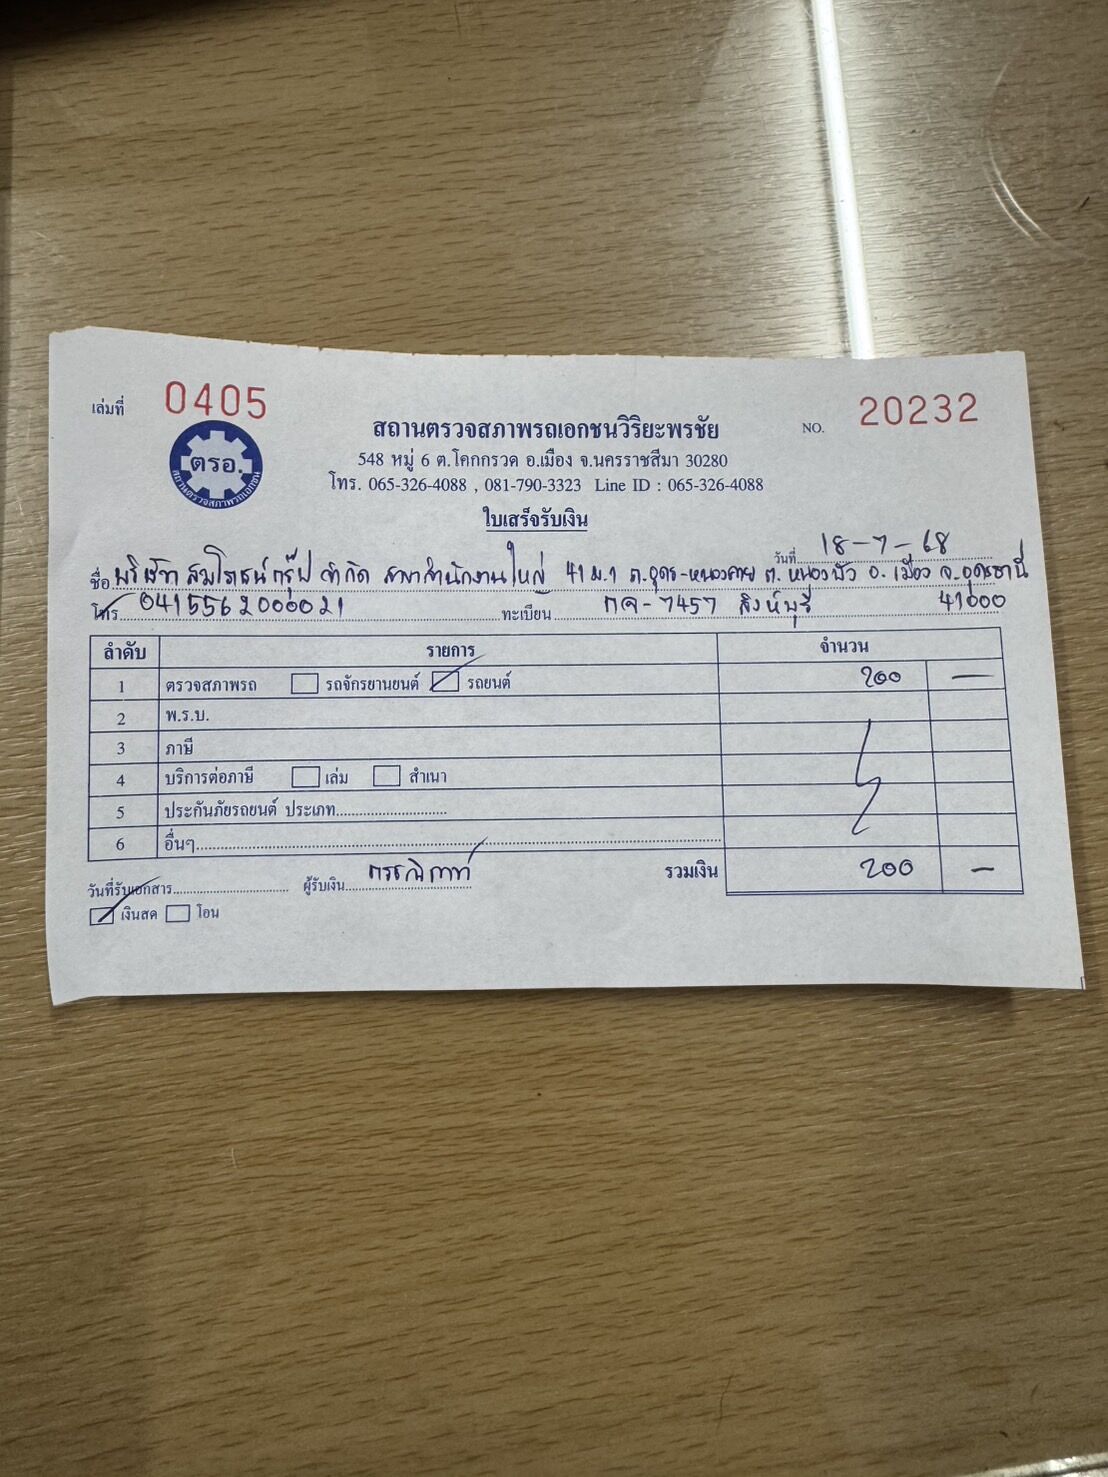 เล่มที่ 0405
NO. 20232
ตรอ.
สถานตรวจสภาพรถเอกชน
สถานตรวจสภาพรถเอกชนวิริยะพรชัย
548 หมู่ 6 ต.โคกกรวด อ.เมือง จ.นครราชสีมา 30280
โทร. 065-326-4088 , 081-790-3323 Line ID : 065-326-4088
ใบเสร็จรับเงิน
วันที่ 18-7-68
ชื่อ บริษัท สมโภชน์กรุ๊ป จำกัด สาขาสำนักงานใหญ่ 41 ม.1 ถ.อุดร-หนองคาย ต.หนองบัว อ.เมือง จ.อุดรธานี
โทร 0415562000021 ทะเบียน กจ-7457 สิงห์บุรี 41000
ลำดับ รายการ จำนวน
1 ตรวจสภาพรถ รถจักรยานยนต์ รถยนต์ 200 —
2 พ.ร.บ.
3 ภาษี
4 บริการต่อภาษี เล่ม สำเนา
5 ประกันภัยรถยนต์ ประเภท
6 อื่นๆ
วันที่รับเอกสาร ผู้รับเงิน รวมเงิน 200 —
เงินสด โอน